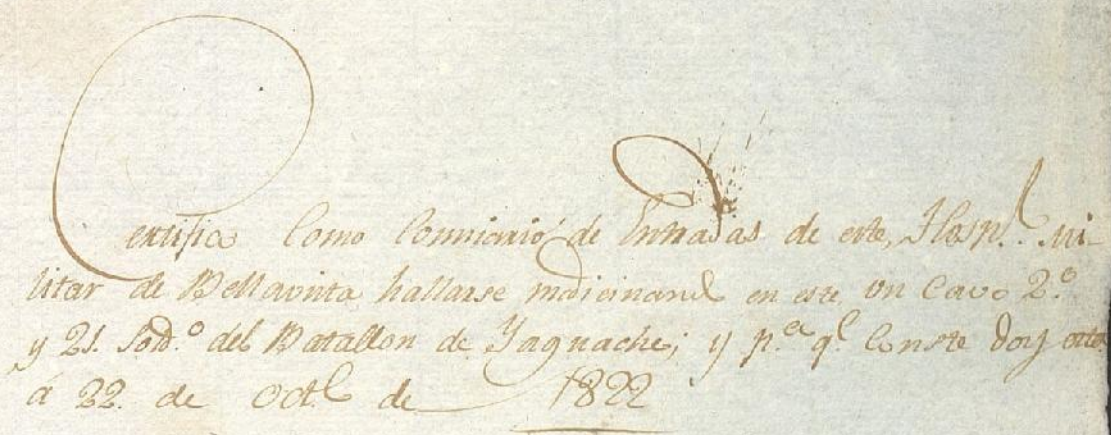 Certifico Como Comisario de Entradas de este, Hospl. Mi-
litar de Bellavista hallarse medicinand en este un Cavo 2.º
y 21. Sold.º del Batallon de Yaguache; y p.ª q.l Conste doy este
á 22. de Octl. de 1822